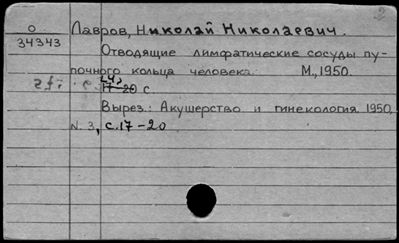 О
34343
Лавров, Николай Николаевич.
Отводящие лимфатические сосуды пу-
почного кольца человека. М., 1950.
17-20 с.
Вырез.: Акушерство и гинекология. 1950,
N. 3, с. 17-20